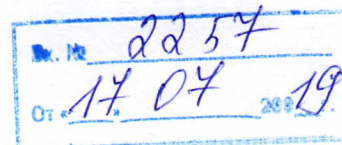 Вх. № 2257
От «17» 07 200 19 г.